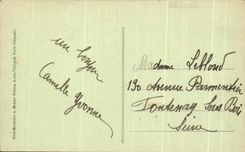 un bonjour
Camille Yvonne
Madame Leblond
130 Avenue Parmentier
Fontenay Sous Bois
Seine